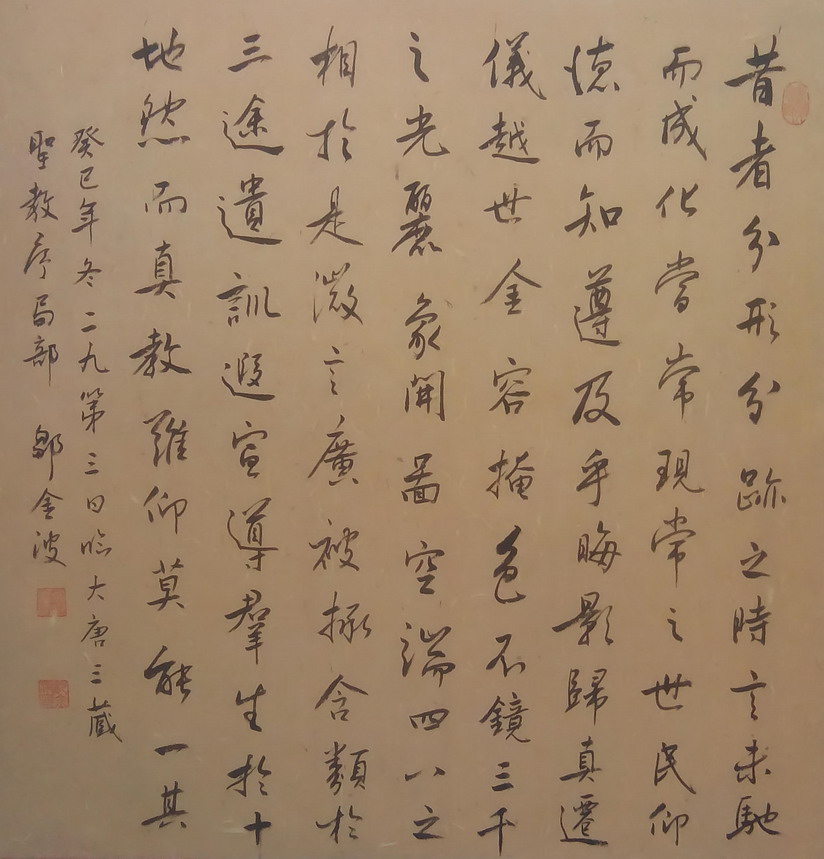 昔者分形分跡之時言未馳
而成化當常現常之世民仰
德而知遵及乎晦影歸真遷
儀越世金容掩色不鏡三千
之光麗象開圖空端四八之
相於是微言廣被拯含類於
三途遺訓遐宣導羣生於十
地然而真教難仰莫能一其
癸巳年冬二九第三日臨大唐三藏
聖教序局部 鄒金波